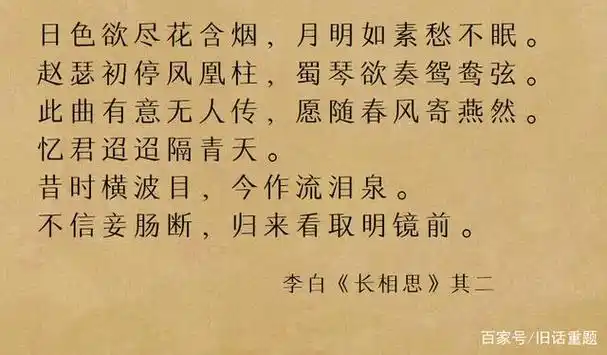 日色欲尽花含烟，月明如素愁不眠。
赵瑟初停凤凰柱，蜀琴欲奏鸳鸯弦。
此曲有意无人传，愿随春风寄燕然。
忆君迢迢隔青天。
昔时横波目，今作流泪泉。
不信妾肠断，归来看取明镜前。
李白《长相思》其二
百家号/旧话重题